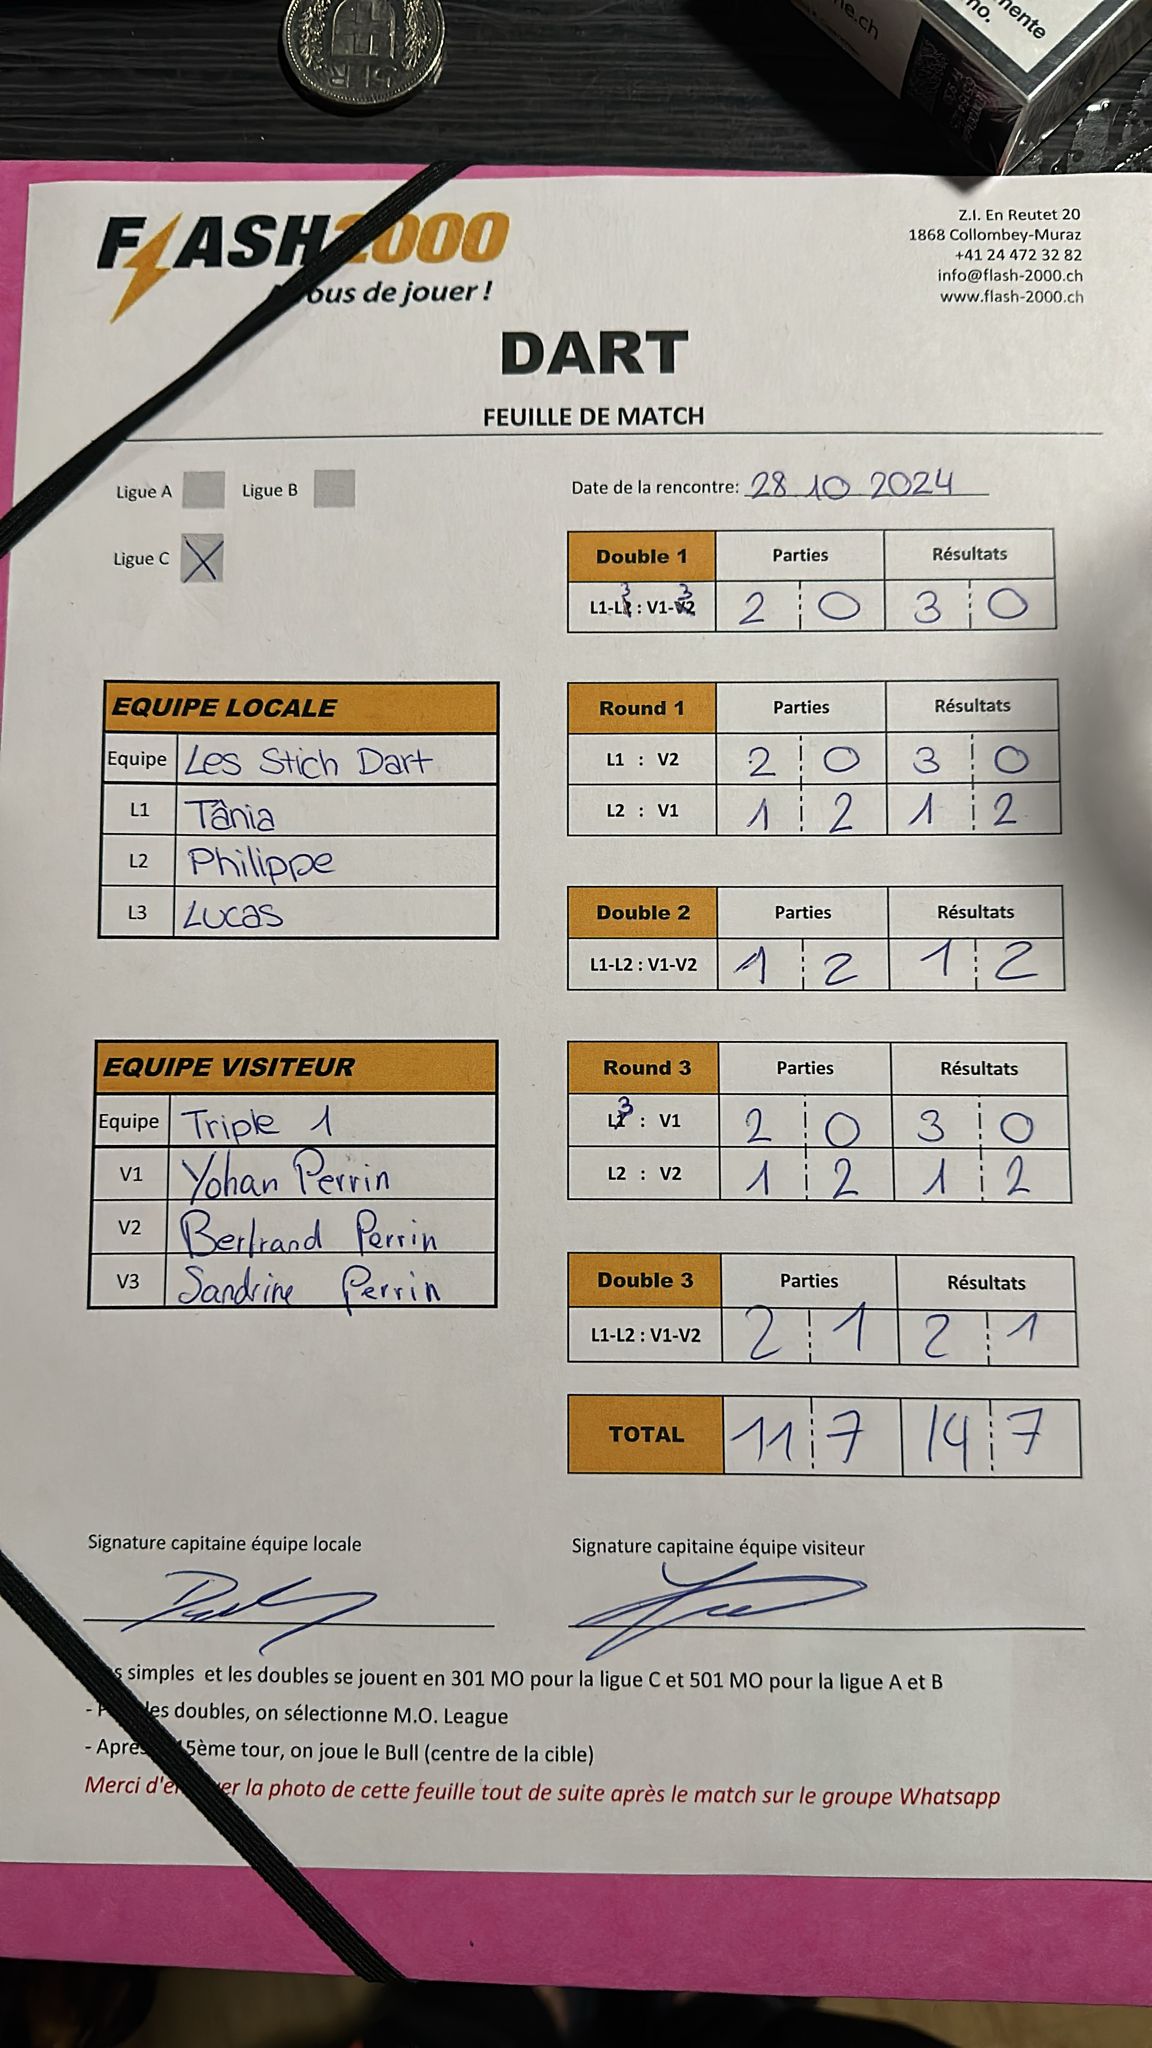 ne.ch
mente
no.
FLASH2000
ous de jouer !
Z.I. En Reutet 20
1868 Collombey-Muraz
+41 24 472 32 82
info@flash-2000.ch
www.flash-2000.ch
DART
FEUILLE DE MATCH
Ligue A Ligue B
Ligue C X
Date de la rencontre: 28 10 2024
Double 1 Parties Résultats
L1-L3 : V1-3 2 0 3 0
EQUIPE LOCALE
Equipe Les Stich Dart
L1 Tânia
L2 Philippe
L3 Lucas
Round 1 Parties Résultats
L1 : V2 2 0 3 0
L2 : V1 1 2 1 2
Double 2 Parties Résultats
L1-L2 : V1-V2 1 2 1 2
EQUIPE VISITEUR
Equipe Triple 1
V1 Yohan Perrin
V2 Bertrand Perrin
V3 Sandrine Perrin
Round 3 Parties Résultats
L3 : V1 2 0 3 0
L2 : V2 1 2 1 2
Double 3 Parties Résultats
L1-L2 : V1-V2 2 1 2 1
TOTAL 11 7 14 7
Signature capitaine équipe locale
Signature capitaine équipe visiteur
s simples et les doubles se jouent en 301 MO pour la ligue C et 501 MO pour la ligue A et B
- P les doubles, on sélectionne M.O. League
- Après 15ème tour, on joue le Bull (centre de la cible)
Merci d'en er la photo de cette feuille tout de suite après le match sur le groupe Whatsapp